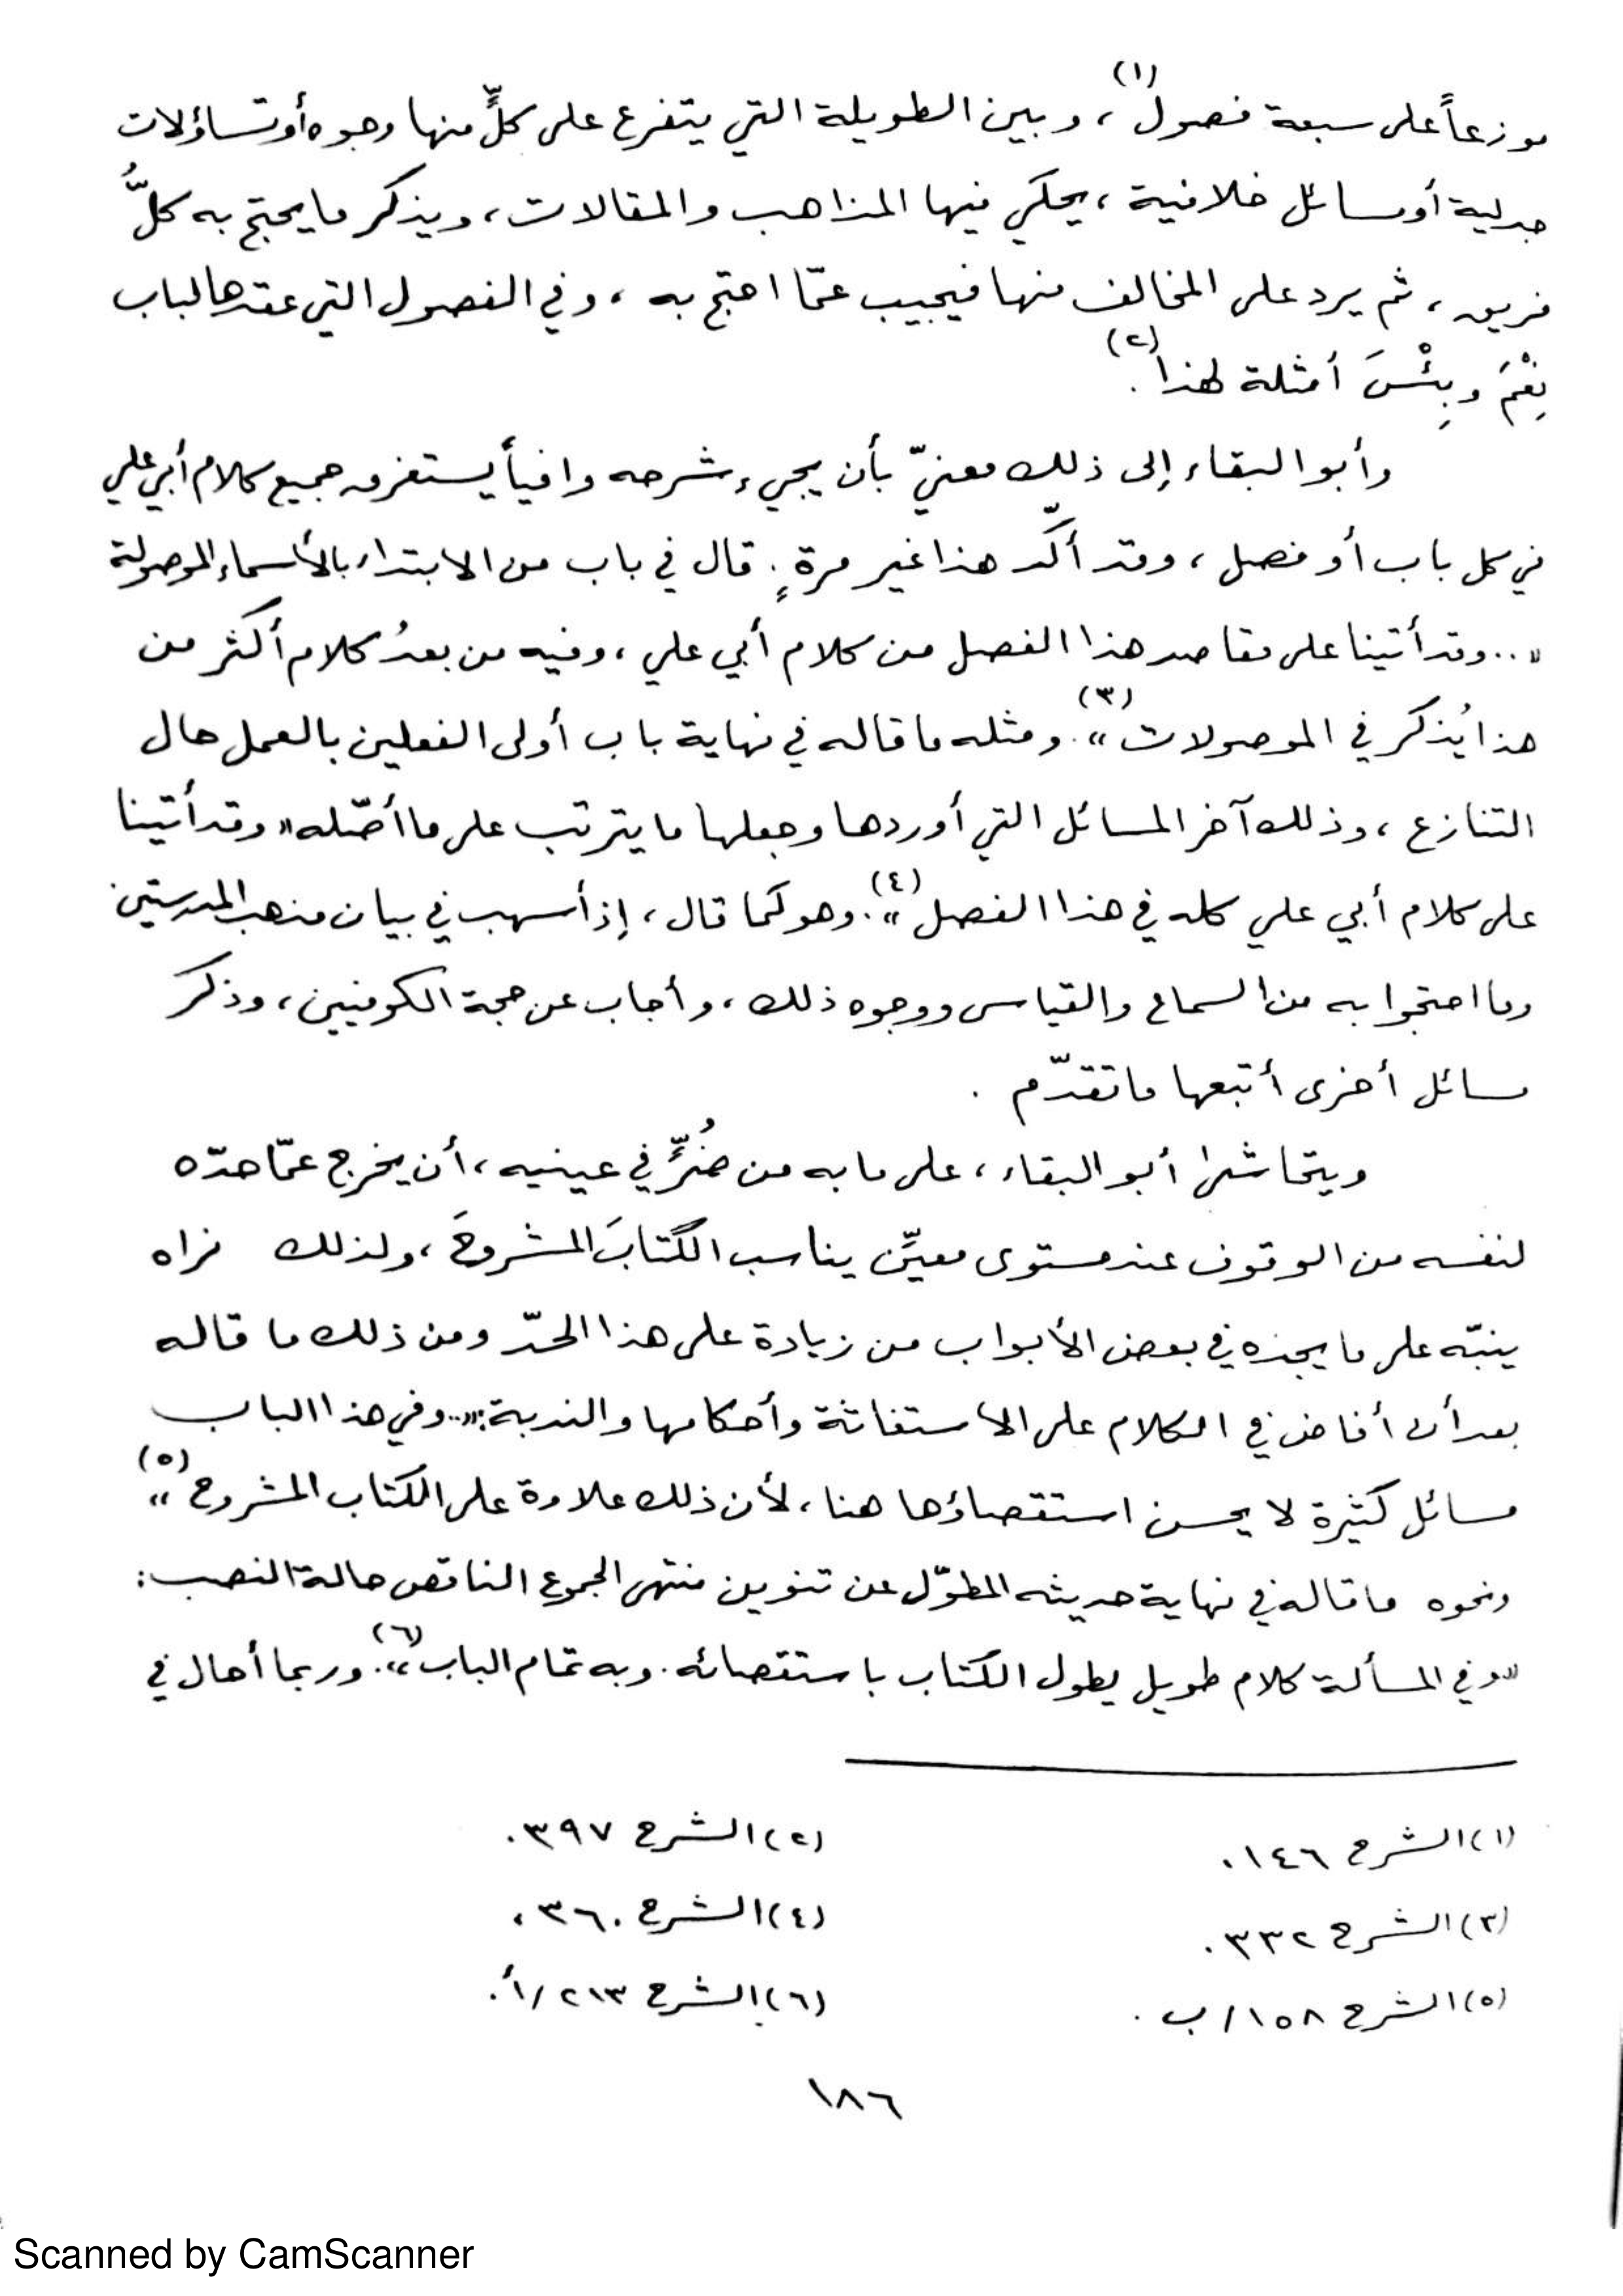 موزعاً على سبعة فصول(١)، وبين الطويلة التي يتفرع على كلٍّ منها وجوه أو تساؤلات
جدلية أو مسائل خلافية، يحكي فيها المذاهب والمقالات، ويذكر ما يحتج به كلُّ
فريق، ثم يرد على المخالف منها فيجيب عمّا احتج به، وفي الفصول التي عقدها لباب
نِعْمَ وبِئْسَ أمثلة لهذا(٢).
وأبو البقاء إلى ذلك معنيّ بأن يجيء شرحه وافياً يستغرق جميع كلام أبي علي
في كل باب أو فصل، وقد أكّد هذا غير مرةٍ. قال في باب من الابتداء بالأسماء الموصولة
«..وقد أتينا على مقاصد هذا الفصل من كلام أبي علي، وفيه من بعدُ كلام أكثر من
هذا يُذكر في الموصولات(٣)». ومثله ما قاله في نهاية باب أولى الفعلين بالعمل حال
التنازع، وذلك آخر المسائل التي أوردها وجعلها ما يترتب على ما أصّله «وقد أتينا
على كلام أبي علي كله في هذا الفصل(٤)». وهو كما قال، إذ أسهب في بيان مذهب المدرستين
وما احتجوا به من السماع والقياس ووجوه ذلك، وأجاب عن حجة الكوفيين، وذكر
مسائل أخرى أتبعها ما تقدّم .
ويتحاشى أبو البقاء، على ما به من ضُرٍّ في عينيه، أن يخرج عمّا حدّه
لنفسه من الوقوف عند مستوى معيّن يناسب الكتابَ المشروحَ، ولذلك نراه
ينبّه على ما يجده في بعض الأبواب من زيادة على هذا الحدّ ومن ذلك ما قاله
بعد أن أفاض في الكلام على الاستغاثة وأحكامها والندبة: «..وفي هذا الباب
مسائل كثيرة لا يحسن استقصاؤها هنا، لأن ذلك علاوة على الكتاب المشروح(٥)»
ونحوه ما قاله في نهاية حديثه المطوّل عن تنوين منتهى الجموع الناقص حالة النصب:
«وفي المسألة كلام طويل يطول الكتاب باستقصائه. وبه تمام الباب(٦)». وربما أحال في
(١) الشرح ١٤٦.
(٢) الشرح ٣٩٧.
(٣) الشرح ٣٣٢.
(٤) الشرح ٣٦٠.
(٥) الشرح ١٥٨/ب .
(٦) الشرح ٢١٣/أ.
١٨٦
Scanned by CamScanner